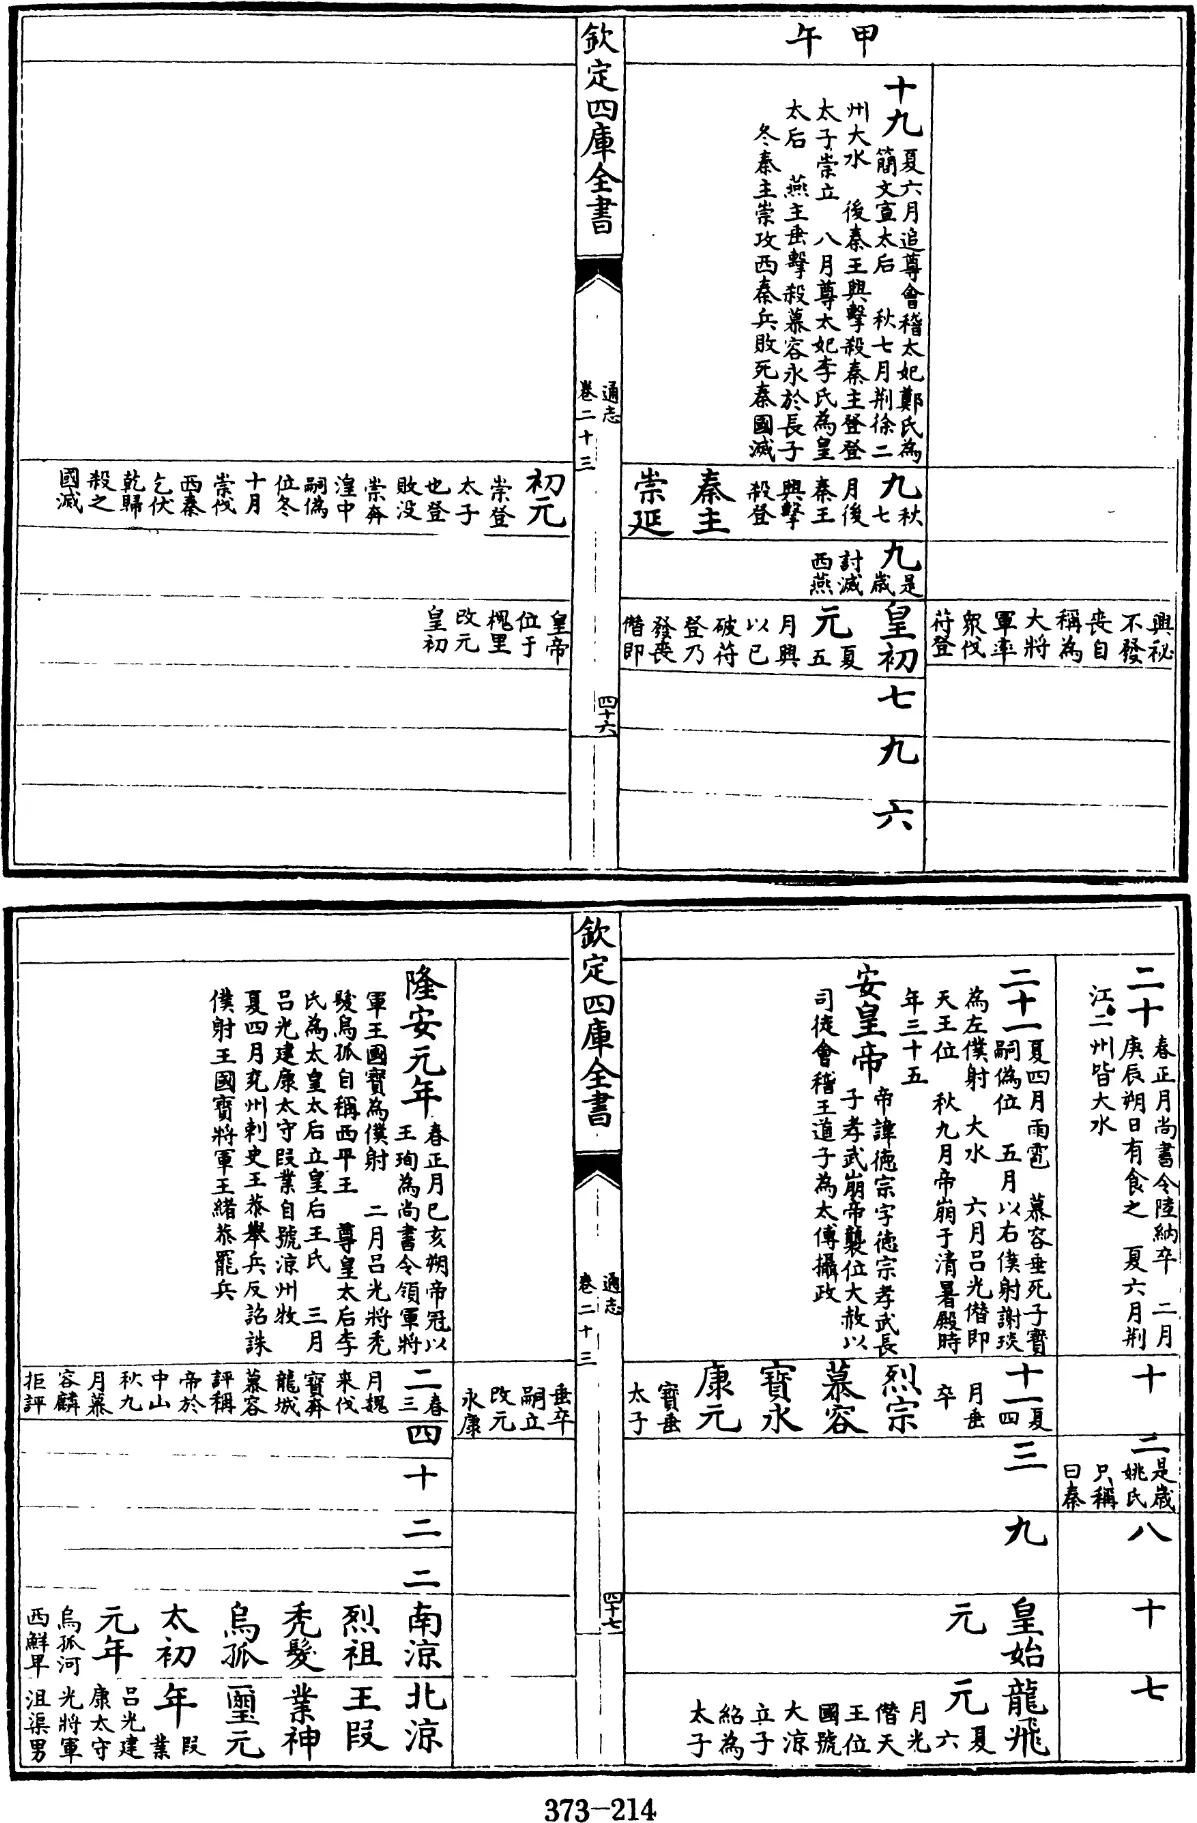 甲午
十九
夏六月追尊會稽太妃鄭氏為
簡文宣太后　秋七月荆徐二
州大水　後秦王興擊殺秦主登登
太子崇立　八月尊太妃李氏為皇
太后　燕主垂擊殺慕容永於長子
冬秦主崇攻西秦兵敗死秦國滅
興秘
不發
喪自
稱為
大將
軍率
衆伐
苻登
九
秋七
月後
秦王
興擊
殺登
秦主
崇延
九
是歲
討滅
西燕
皇初
元
夏五
月興
以已
破符
登乃
發喪
僭即
七
九
六
欽定四庫全書
通志
卷二十三
四十六
初元
崇登
太子
也登
敗没
崇奔
湟中
嗣偽
位冬
十月
崇伐
西秦
乞伏
乾歸
殺之
國滅
皇帝
位于
槐里
改元
皇初
二十
春正月尚書令陸納卒　二月
庚辰朔日有食之　夏六月荆
江二州皆大水
十
二
是歲
姚氏
只稱
曰秦
八
十
七
二十一
夏四月雨雹　慕容垂死子寶
嗣偽位　五月以右僕射謝琰
為左僕射　大水　六月吕光僭即
天王位　秋九月帝崩于清暑殿時
年三十五
安皇帝
帝諱徳宗字徳宗孝武長
子孝武崩帝襲位大赦以
司徒會稽王道子為太傅攝政
十一
夏四
月垂
卒
烈宗
慕容
寶永
康元
寶垂
太子
三
九
皇始
元
龍飛
元
夏六
月光
僭天
王位
國號
大涼
立子
紹為
太子
欽定四庫全書
通志
卷二十三
四十七
垂卒
嗣立
改元
永康
隆安元年
春正月己亥朔帝冠以
王珣為尚書令領軍將
軍王國寶為僕射　二月吕光將秃
髮烏孤自稱西平王　尊皇太后李
氏為太皇太后立皇后王氏　三月
吕光建康太守段業自號涼州牧
夏四月兗州刺史王恭舉兵反詔誅
僕射王國寶將軍王緒恭罷兵
二
春三
月魏
来伐
寶奔
龍城
慕容
評稱
帝於
中山
秋九
月慕
容麟
拒評
四
十
二
二
南涼
烈祖
秃髮
烏孤
太初
元年
烏孤河
西鮮卑
北涼
王段
業神
璽元
年
段業
吕光建
康太守
光將軍
沮渠男
373-214